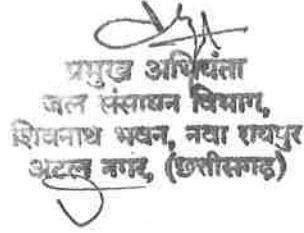 प्रमुख अभियंता
जल संसाधन विभाग,
शिवनाथ भवन, नवा रायपुर
अटल नगर, (छत्तीसगढ़)